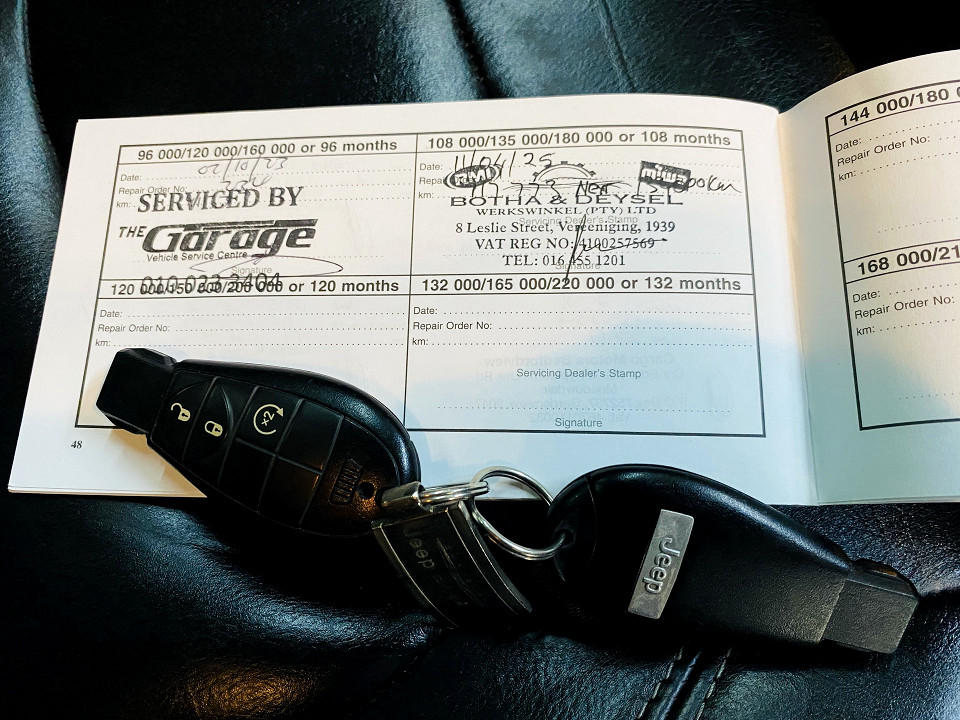 96 000/120 000/160 000 or 96 months
Date:
Repair Order No:
km:
SERVICED BY
THE Garage
Vehicle Service Centre
Signature
108 000/135 000/180 000 or 108 months
Date: 11/04/25
Repa
miwa
Next
BOTHA & DEYSEL
Servicing Dealer's Stamp
WERKSWINKEL (PTY) LTD
8 Leslie Street, Vereeniging, 1939
VAT REG NO: 4100257569
TEL: 016 455 1201
Signature
120 000/150 000/200 000 or 120 months
Date:
Repair Order No:
km:
132 000/165 000/220 000 or 132 months
Date:
Repair Order No:
km:
Servicing Dealer's Stamp
Signature
48
144 000/180 0
Date:
Repair Order No:
km:
168 000/21
Date:
Repair Order No:
km:
x2
Jeep
Jeep